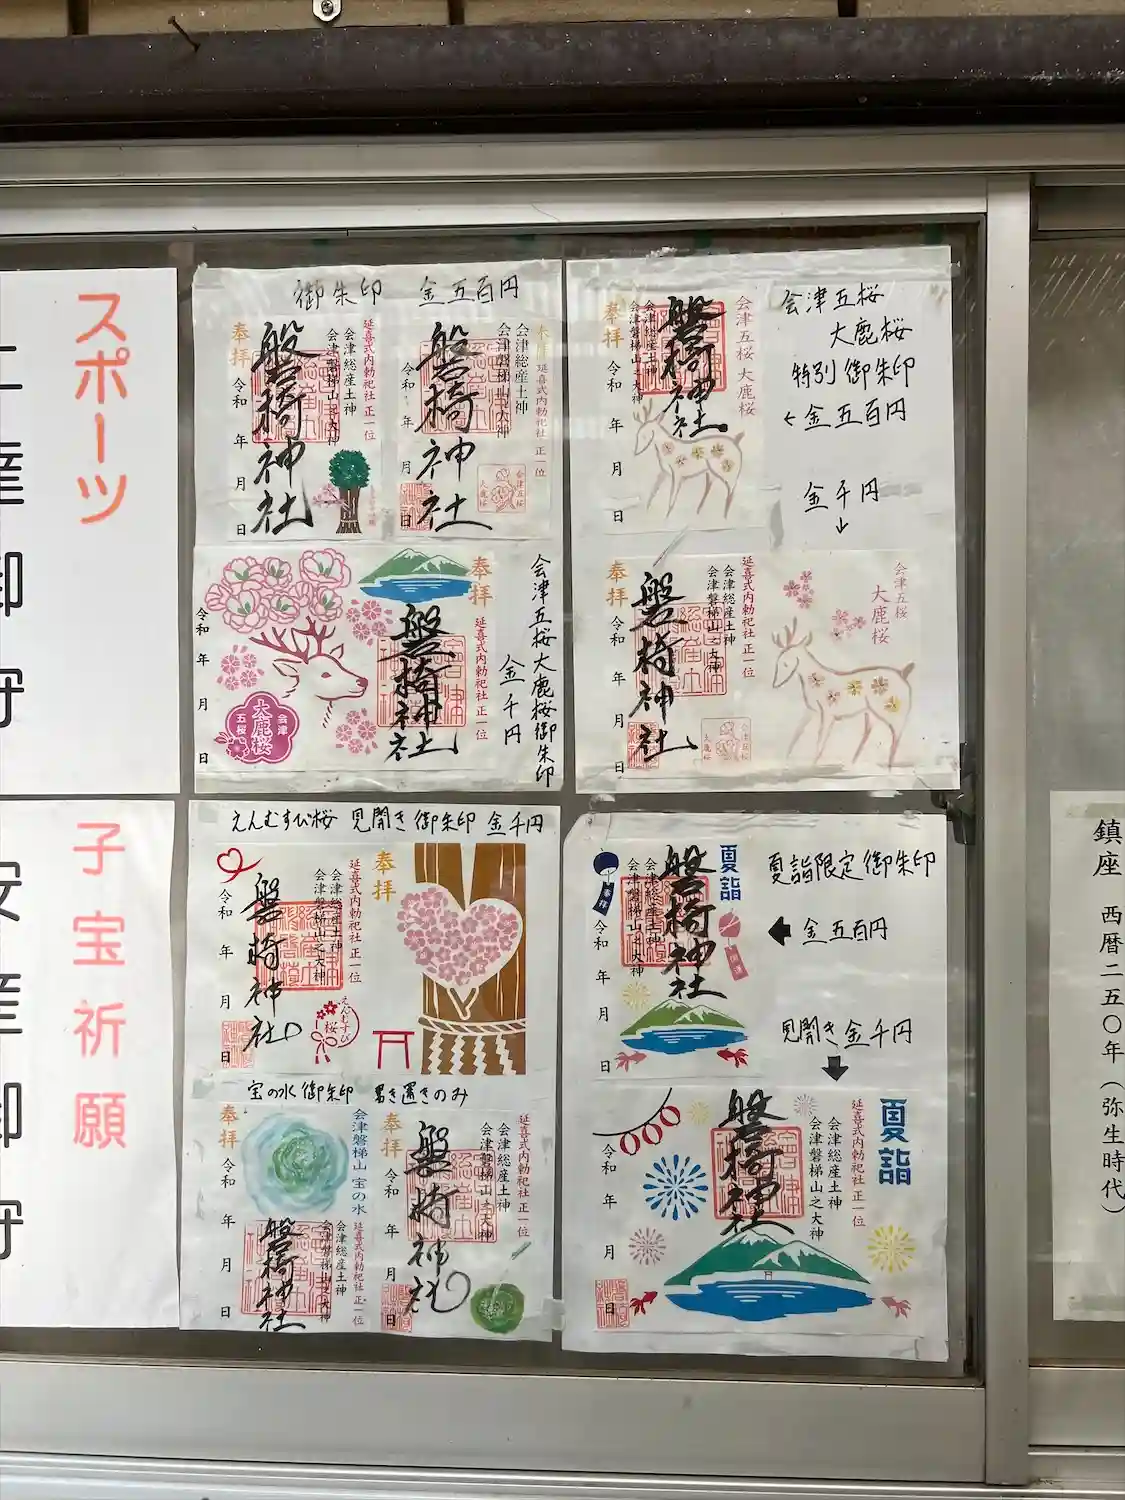 スポーツ
子宝祈願
御朱印 金五百円
奉拝
令和 年 月 日
盤椅神社
会津総産土神
会津磐梯山之大神
延喜式内勅祀社 正一位
令和 年 月 日
盤椅神社
会津総産土神
会津磐梯山之大神
延喜式内勅祀社 正一位
会津五桜
大鹿桜
奉拝
令和 年 月 日
盤椅神社
延喜式内勅祀社 正一位
会津
五桜
大鹿桜
会津五桜大鹿桜御朱印
金千円
会津五桜
大鹿桜
特別御朱印
←金五百円
金千円
↓
奉拝
令和 年 月 日
盤椅神社
会津総産土神
会津磐梯山之大神
会津五桜 大鹿桜
奉拝
令和 年 月 日
盤椅神社
会津総産土神
会津磐梯山之大神
延喜式内勅祀社 正一位
会津五桜
大鹿桜
会津五桜
大鹿桜
えんむすび桜 見開き御朱印 金千円
奉拝
令和 年 月 日
盤椅神社
会津総産土神
会津磐梯山之大神
延喜式内勅祀社 正一位
えんむすび
桜
宝の水御朱印 書き置きのみ
奉拝
令和 年 月 日
盤椅神社
会津総産土神
会津磐梯山之大神
延喜式内勅祀社 正一位
会津磐梯山 宝の水
奉拝
令和 年 月 日
盤椅神社
会津総産土神
会津磐梯山之大神
延喜式内勅祀社 正一位
夏詣限定御朱印
←金五百円
見開き金千円
↓
夏詣
奉拝
開運
令和 年 月 日
盤椅神社
会津総産土神
会津磐梯山之大神
夏詣
令和 年 月 日
盤椅神社
会津総産土神
会津磐梯山之大神
延喜式内勅祀社 正一位
鎮座 西暦二五〇年(弥生時代)